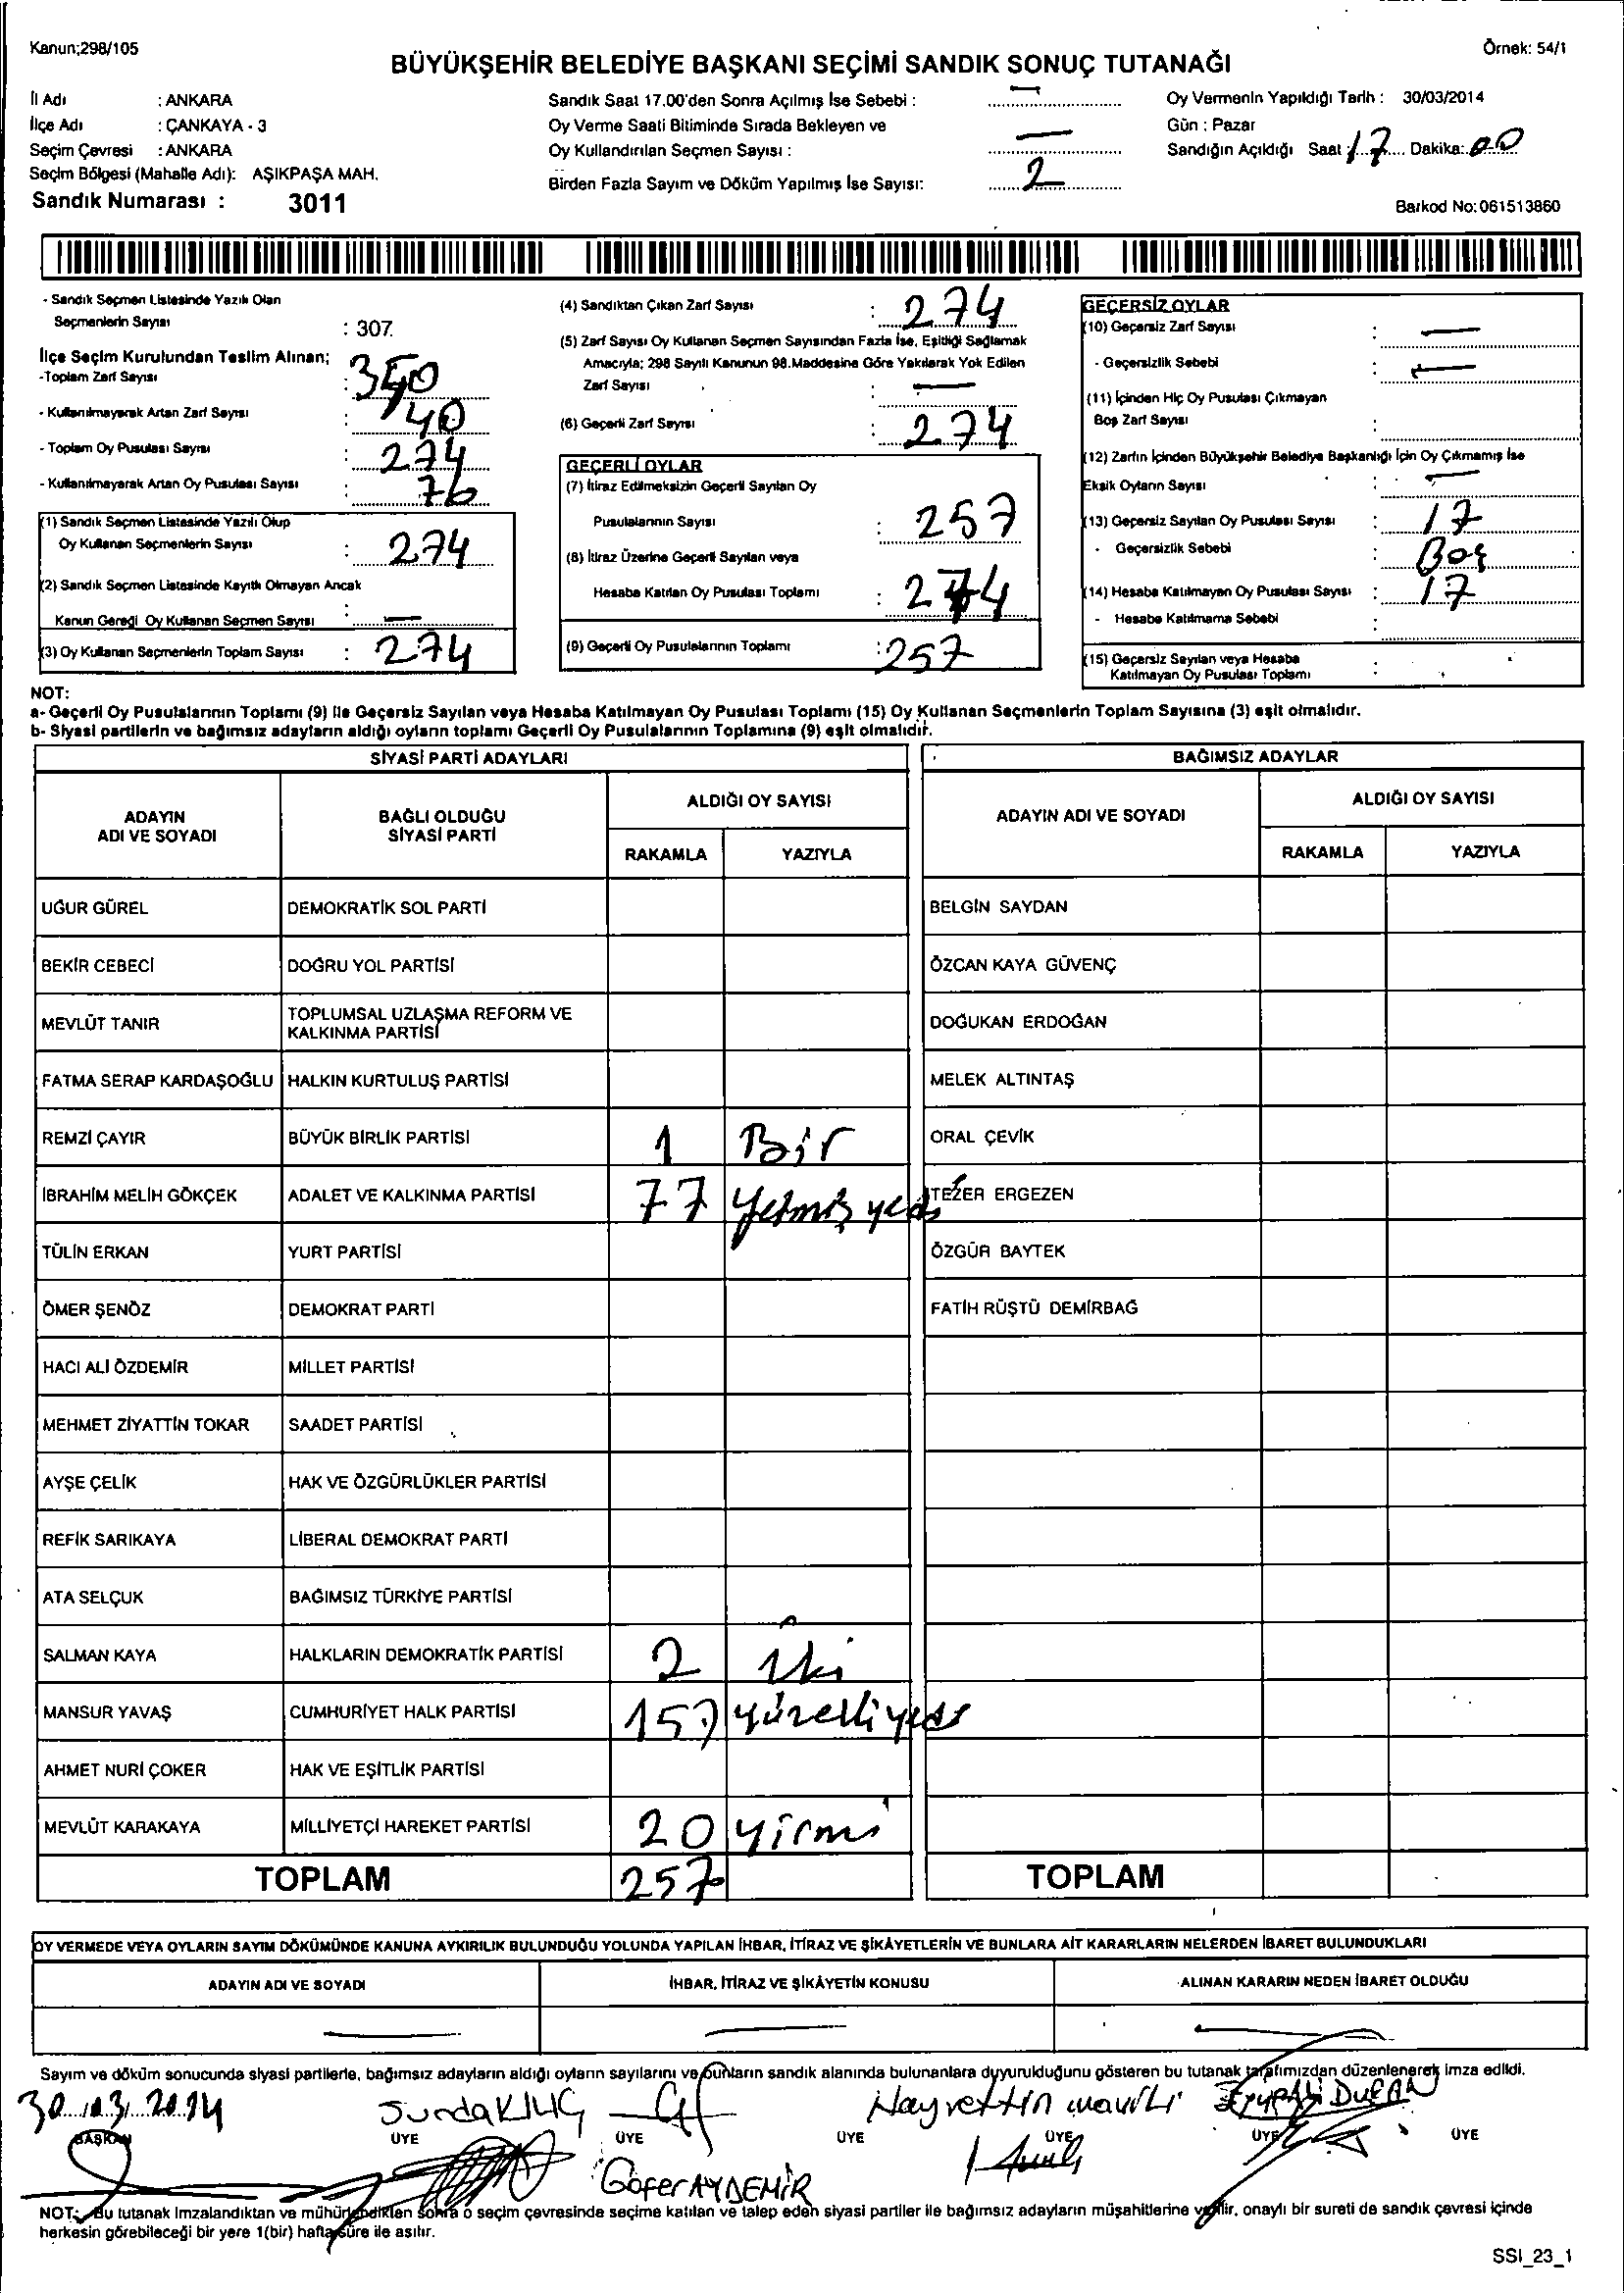 Kanun;298/105
Örnek: 54/1
BÜYÜKŞEHİR BELEDİYE BAŞKANI SEÇİMİ SANDIK SONUÇ TUTANAĞI
İl Adı : ANKARA
İlçe Adı : ÇANKAYA - 3
Seçim Çevresi : ANKARA
Seçim Bölgesi (Mahalle Adı): AŞIKPAŞA MAH.
Sandık Numarası : 3011
Sandık Saat 17.00'den Sonra Açılmış İse Sebebi : —
Oy Verme Saati Bitiminde Sırada Bekleyen ve
Oy Kullandırılan Seçmen Sayısı : —
Birden Fazla Sayım ve Döküm Yapılmış İse Sayısı: 2
Oy Vermenin Yapıldığı Tarih : 30/03/2014
Gün : Pazar
Sandığın Açıldığı Saat 17 Dakika: 00
Barkod No: 061513860
- Sandık Seçmen Listesinde Yazılı Olan
Seçmenlerin Sayısı : 307
İlçe Seçim Kurulundan Teslim Alınan;
-Toplam Zarf Sayısı : 350
- Kullanılmayarak Artan Zarf Sayısı : 40
- Toplam Oy Pusulası Sayısı : 274
- Kullanılmayarak Artan Oy Pusulası Sayısı : 76
(1) Sandık Seçmen Listesinde Yazılı Olup
Oy Kullanan Seçmenlerin Sayısı : 274
(2) Sandık Seçmen Listesinde Kayıtlı Olmayan Ancak
Kanun Gereği Oy Kullanan Seçmen Sayısı : —
(3) Oy Kullanan Seçmenlerin Toplam Sayısı : 274
(4) Sandıktan Çıkan Zarf Sayısı : 274
(5) Zarf Sayısı Oy Kullanan Seçmen Sayısından Fazla İse, Eşitliği Sağlamak
Amacıyla; 298 Sayılı Kanunun 98.Maddesine Göre Yakılarak Yok Edilen
Zarf Sayısı : —
(6) Geçerli Zarf Sayısı : 274
GEÇERLİ OYLAR
(7) İtiraz Edilmeksizin Geçerli Sayılan Oy
Pusulalarının Sayısı : 257
(8) İtiraz Üzerine Geçerli Sayılan veya
Hesaba Katılan Oy Pusulası Toplamı : 274
(9) Geçerli Oy Pusulalarının Toplamı : 257
GEÇERSİZ OYLAR
(10) Geçersiz Zarf Sayısı : —
- Geçersizlik Sebebi : —
(11) İçinden Hiç Oy Pusulası Çıkmayan
Boş Zarf Sayısı :
(12) Zarfın İçinden Büyükşehir Belediye Başkanlığı İçin Oy Çıkmamış İse
Eksik Oyların Sayısı : —
(13) Geçersiz Sayılan Oy Pusulası Sayısı : 17
- Geçersizlik Sebebi : Boş
(14) Hesaba Katılmayan Oy Pusulası Sayısı : 17
- Hesaba Katılmama Sebebi :
(15) Geçersiz Sayılan veya Hesaba
Katılmayan Oy Pusulası Toplamı :
NOT:
a- Geçerli Oy Pusulalarının Toplamı (9) ile Geçersiz Sayılan veya Hesaba Katılmayan Oy Pusulası Toplamı (15) Oy Kullanan Seçmenlerin Toplam Sayısına (3) eşit olmalıdır.
b- Siyasi partilerin ve bağımsız adayların aldığı oyların toplamı Geçerli Oy Pusulalarının Toplamına (9) eşit olmalıdır.
SİYASİ PARTİ ADAYLARI
ADAYIN ADI VE SOYADI BAĞLI OLDUĞU SİYASİ PARTİ ALDIĞI OY SAYISI
RAKAMLA YAZIYLA
UĞUR GÜREL DEMOKRATİK SOL PARTİ
BEKİR CEBECİ DOĞRU YOL PARTİSİ
MEVLÜT TANIR TOPLUMSAL UZLAŞMA REFORM VE KALKINMA PARTİSİ
FATMA SERAP KARDAŞOĞLU HALKIN KURTULUŞ PARTİSİ
REMZİ ÇAYIR BÜYÜK BİRLİK PARTİSİ 1 Bir
İBRAHİM MELİH GÖKÇEK ADALET VE KALKINMA PARTİSİ 77 yetmiş yedi
TÜLİN ERKAN YURT PARTİSİ
ÖMER ŞENÖZ DEMOKRAT PARTİ
HACI ALİ ÖZDEMİR MİLLET PARTİSİ
MEHMET ZİYATTİN TOKAR SAADET PARTİSİ
AYŞE ÇELİK HAK VE ÖZGÜRLÜKLER PARTİSİ
REFİK SARIKAYA LİBERAL DEMOKRAT PARTİ
ATA SELÇUK BAĞIMSIZ TÜRKİYE PARTİSİ
SALMAN KAYA HALKLARIN DEMOKRATİK PARTİSİ 2 iki
MANSUR YAVAŞ CUMHURİYET HALK PARTİSİ 157 yüzelliyedi
AHMET NURİ ÇOKER HAK VE EŞİTLİK PARTİSİ
MEVLÜT KARAKAYA MİLLİYETÇİ HAREKET PARTİSİ 20 yirmi
TOPLAM 257
BAĞIMSIZ ADAYLAR
ADAYIN ADI VE SOYADI ALDIĞI OY SAYISI
RAKAMLA YAZIYLA
BELGİN SAYDAN
ÖZCAN KAYA GÜVENÇ
DOĞUKAN ERDOĞAN
MELEK ALTINTAŞ
ORAL ÇEVİK
TEZER ERGEZEN
ÖZGÜR BAYTEK
FATİH RÜŞTÜ DEMİRBAĞ
TOPLAM
OY VERMEDE VEYA OYLARIN SAYIM DÖKÜMÜNDE KANUNA AYKIRILIK BULUNDUĞU YOLUNDA YAPILAN İHBAR, İTİRAZ VE ŞİKÂYETLERİN VE BUNLARA AİT KARARLARIN NELERDEN İBARET BULUNDUKLARI
ADAYIN ADI VE SOYADI İHBAR, İTİRAZ VE ŞİKÂYETİN KONUSU ALINAN KARARIN NEDEN İBARET OLDUĞU
— — —
Sayım ve döküm sonucunda siyasi partilerle, bağımsız adayların aldığı oyların sayılarını ve bunların sandık alanında bulunanlara duyurulduğunu gösteren bu tutanak tarafımızdan düzenlenerek imza edildi.
30.03.2014 Sunda KILIÇ Hayrettin
BAŞKAN ÜYE ÜYE ÜYE ÜYE ÜYE ÜYE
AYDEMİR
NOT: Bu tutanak imzalandıktan ve mühürlendikten sonra o seçim çevresinde seçime katılan ve talep eden siyasi partiler ile bağımsız adayların müşahitlerine verilir, onaylı bir sureti de sandık çevresi içinde
herkesin görebileceği bir yere 1(bir) hafta süre ile asılır.
SSI_23_1